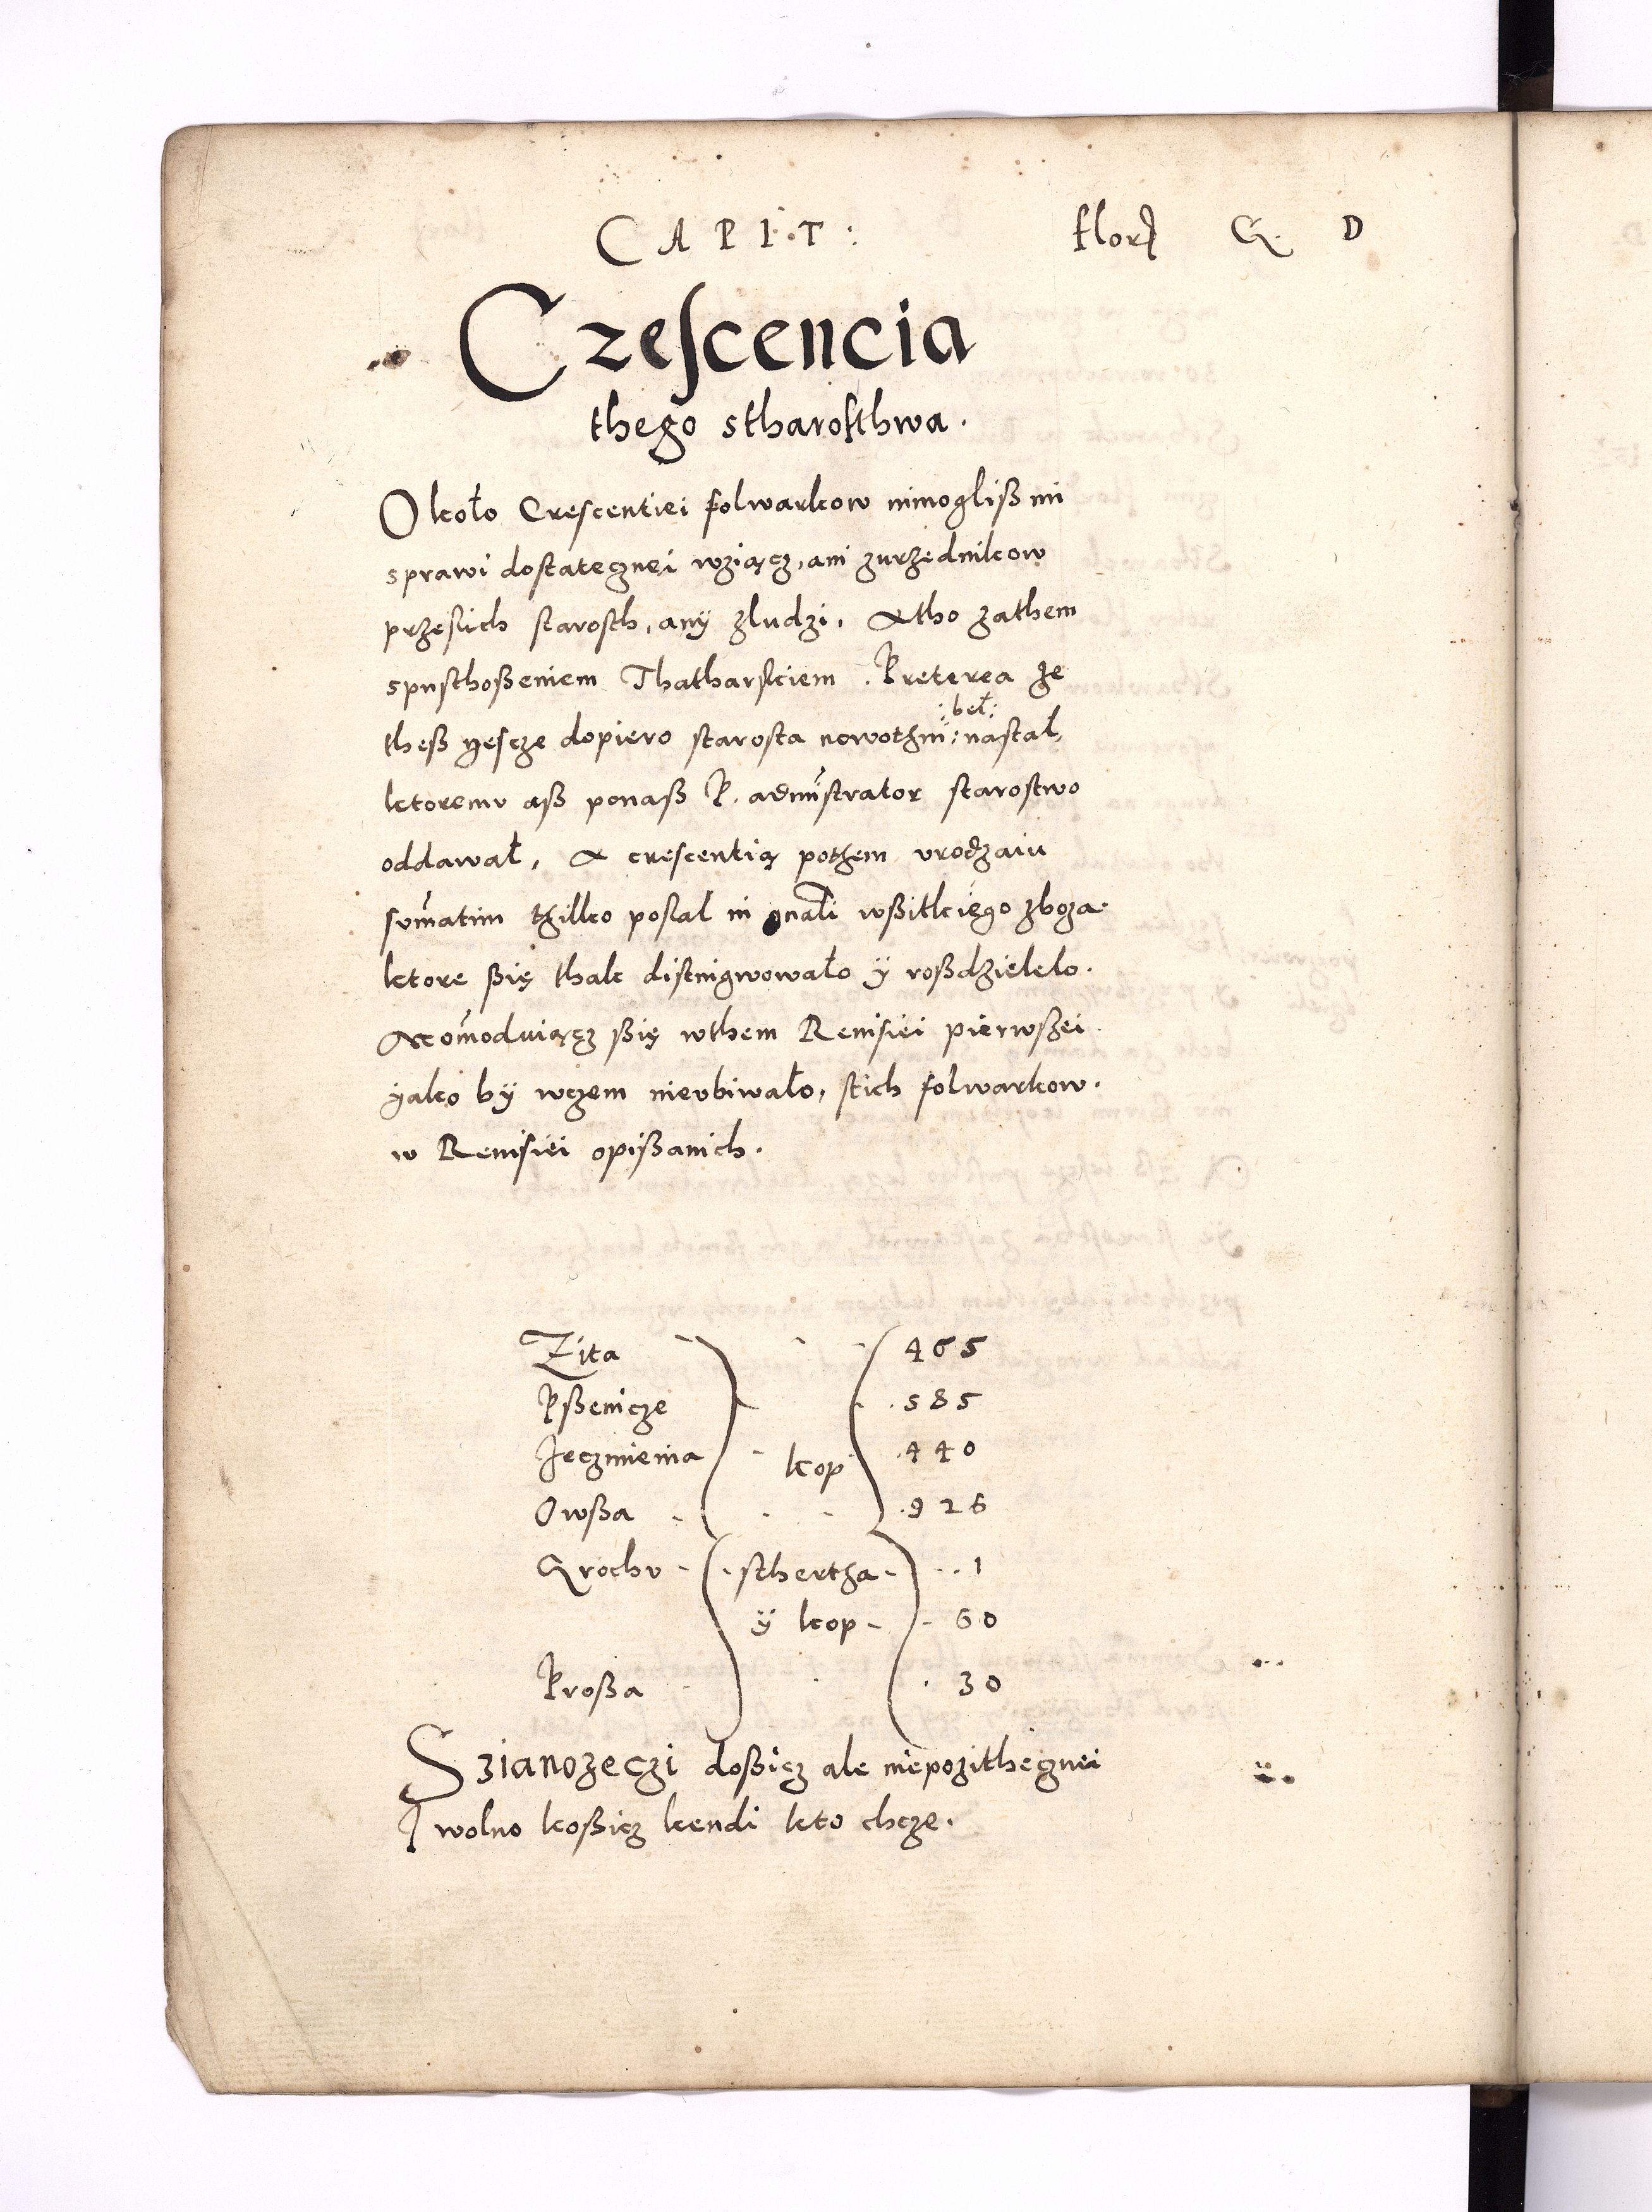 CAPIT: flor G. D
Czescencia
thego stharosthwa.
Około Crescentiei folwarkow nimogliß mi
sprawi dostatecznei wziącz, ani zurzednikow
przeslich starosth, any zludzi, A tho zathem
spusthoßeniem Thatharskiem. Preterea że
:beł:
theß yescze dopiero starosta nowothni: nastał,
ktoremu aß ponaß P. administrator starostwo
oddawał, A crescentią pothem urodzaiu
summatim thilko poslal in wßitkiego zboza.
ktore ßię thak distnigwowało ÿ roßdzielelo.
Accomoduiącz ßię wthem Remisiei pierwßei
yako bÿ wczem nieubiwało, stich folwarkow.
w Remisiei opißanich.
Zita 465
Pßenicze 585
Jeczmienia kop 440
Owßa 926
Grochu sthertha 1
ÿ kop 60
Proßa 30
Szianozeczi doßicz ale niepozithecznei
J wolno koßicz kendi kto chcze.